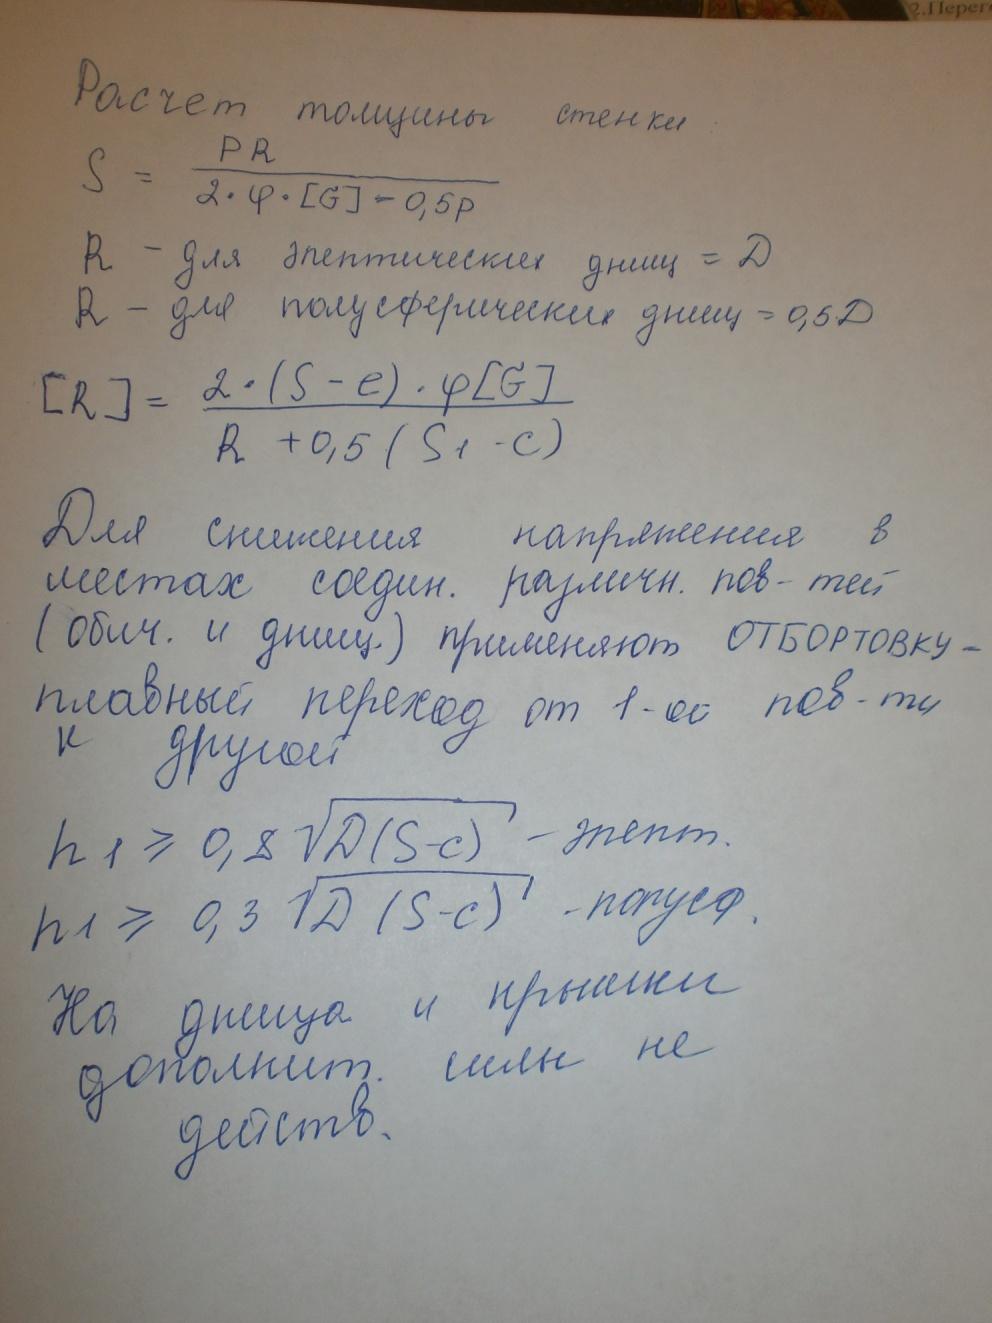 2.Перег
Расчет толщины стенки
S = PR / 2·φ·[G] - 0,5p
R - для элептических днищ = D
R - для полусферических днищ = 0,5D
[R] = 2·(S-e)·φ[G] / R +0,5(S1-c)
Для снижения напряжения в
местах соедин. различн. пов-тей
(обич. и днищ.) применяют ОТБОРТОВКУ-
плавный переход от 1-ой пов-ти
к другой
h1 ≥ 0,8 √D(S-c) - элепт.
h1 ≥ 0,3 √D (S-c) - полусф.
На днища и крышки
дополнит. силы не
действ.